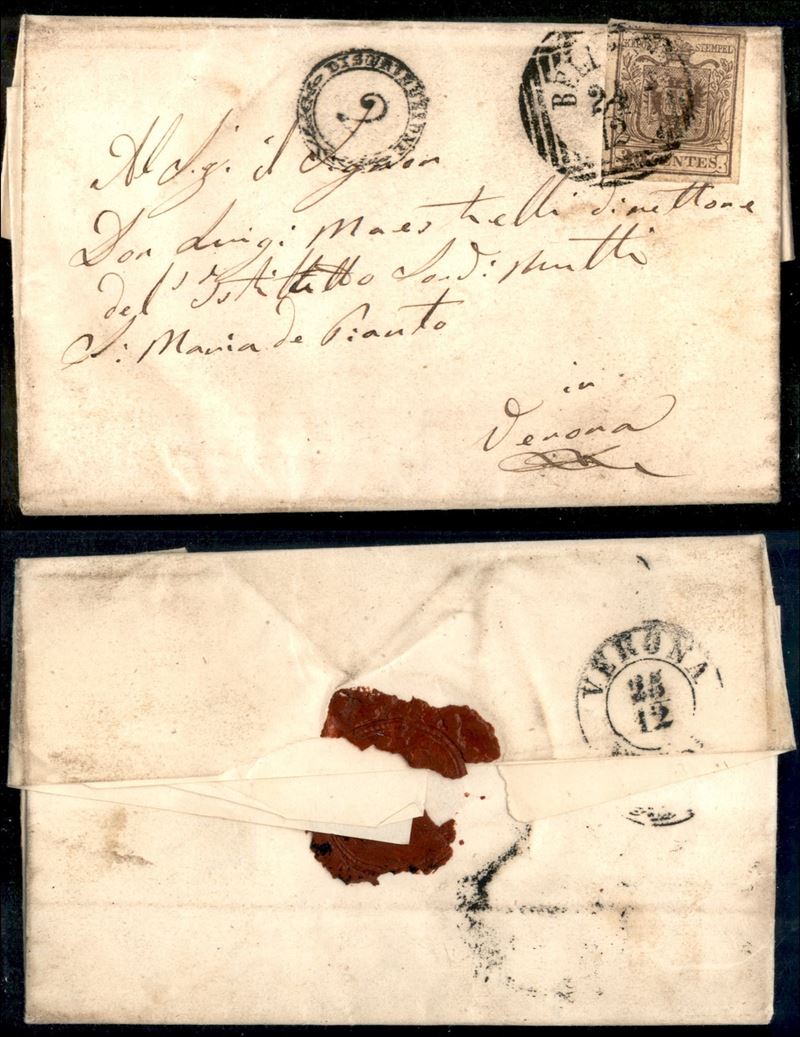 DISTRIBUZIONE
BEL
12
STEMPEL
CENTES.
Al Sig. il Signor
Don Luigi Maestrelli direttore
del Istituto Sordi Mutti
S. Maria de Pianto
in
Verona
VERONA
25
12